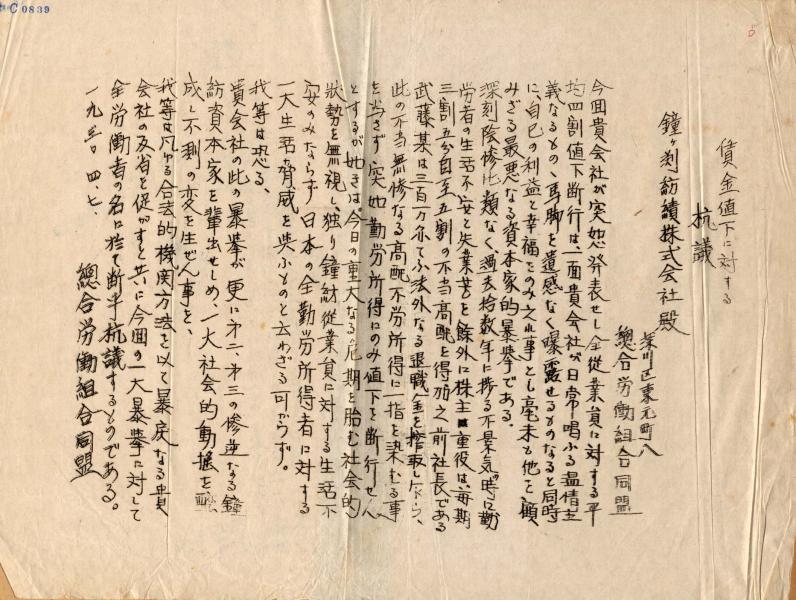 C0839
賃金値下に対する
抗議
深川区東元町八
總合労働組合同盟
鐘ヶ渕紡績株式会社殿
今回貴会社が突如発表せし全従業員に対する平
均四割値下断行は、一面貴会社が日常唱ふる温情主
義なるもの、馬脚を遺憾なく曝露せるものなると同時
に、自己の利益と幸福をのみ之れ事とし毫末も他を顧
みざる最悪なる資本家的暴挙である。
深刻陰惨比類なく、過去拾数年に捗る不景気時に勤
労者の生活不安と失業苦を餘外に株主重役は、毎期
三割五分自至五割の不当高配を得、加之前社長である
武藤某は三百万弗てふ法外なる退職金を搾取しながら、
此の不当無惨なる高配不労所得に一指を染むる事
を為さず突如勤労所得にのみ値下を断行せん
とするが如きは、今日の重大なる危期を胎む社会的
状勢を無視し、独り鐘紡従業員に対する生活不
安のみならず日本の全勤労所得者に対する
一大生活脅威を與ふものと云わざる可からず。
我等は恐る、
貴会社の此の暴挙が更に第二、第三の惨逆なる鐘
紡資本家を輩出せしめ、一大社会的動揺を醸
成し不測の変を生ぜん事を、
我等は凡ゆる合法的機関方法を以て暴戻なる貴
会社の反省を促がすと共に今回の一大暴挙に対して
全労働者の名に於て断乎抗議するものである。
一九三〇、四、七、
總合労働組合同盟